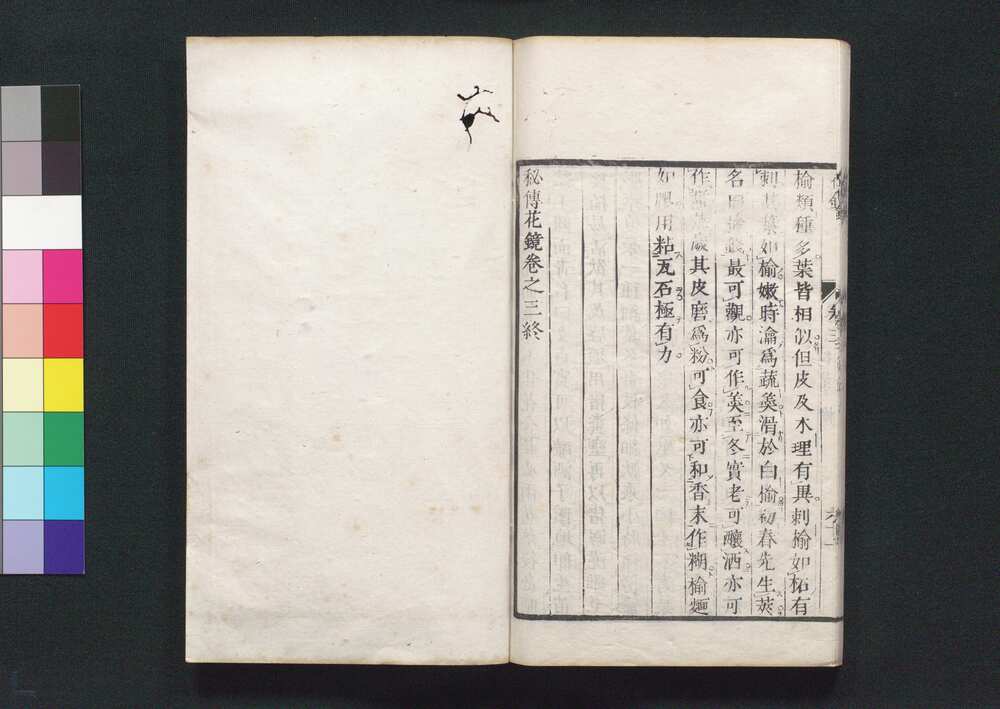 榆類種多葉皆相似但皮及木理有異刺榆如柘有
刺其葉如榆嫩時瀹爲蔬羹滑於白榆初春先生莢
名曰榆錢最可觀亦可作羹至冬實老可釀酒亦可
作 其皮磨爲粉可食亦可和香末作糊榆麵
如 用粘瓦石極有力
秘傳花鏡卷之三終